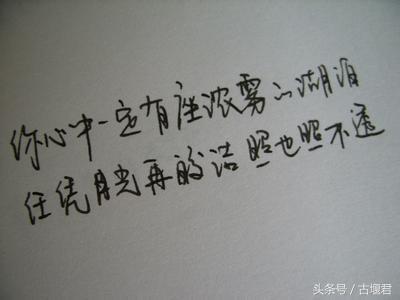 你心中一定有座浓雾的湖泊
任凭月光再皎洁照也照不透
头条号／古堰君